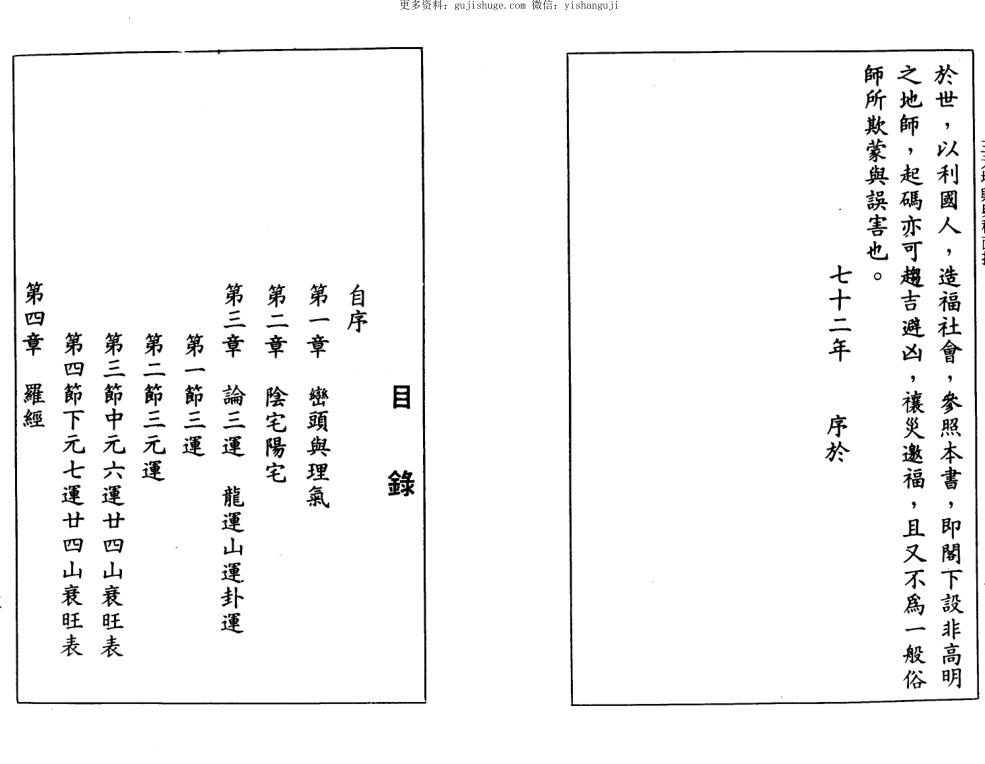 更多资料：gujishuge.com 微信：yishanguji
於世，以利國人，造福社會，參照本書，即閣下設非高明
之地師，起碼亦可趨吉避凶，禳災邀福，且又不為一般俗
師所欺蒙與誤害也。
七十二年　序於
目錄
自序
第一章　巒頭與理氣
第二章　陰宅陽宅
第三章　論三運　龍運山運卦運
第一節三運
第二節三元運
第三節中元六運廿四山衰旺表
第四節下元七運廿四山衰旺表
第四章　羅經